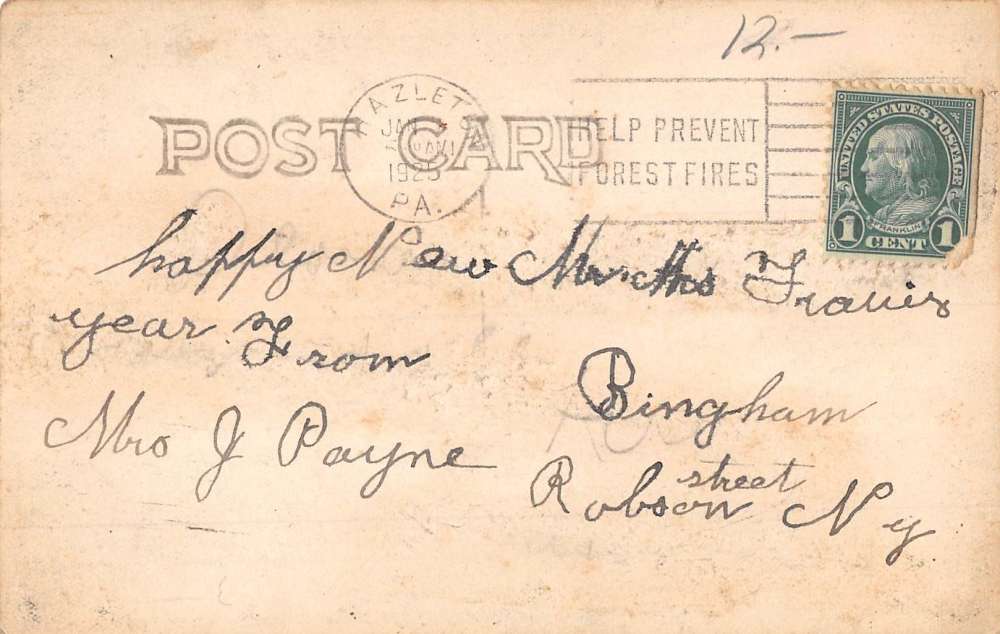 12.-
POST CARD
HAZLETON
JAN
1925
PA.
HELP PREVENT
FOREST FIRES
UNITED STATES POSTAGE
FRANKLIN
1 CENT 1
happy New
year From
Mrs J Payne
Francis
Bingham
street
Robson N y